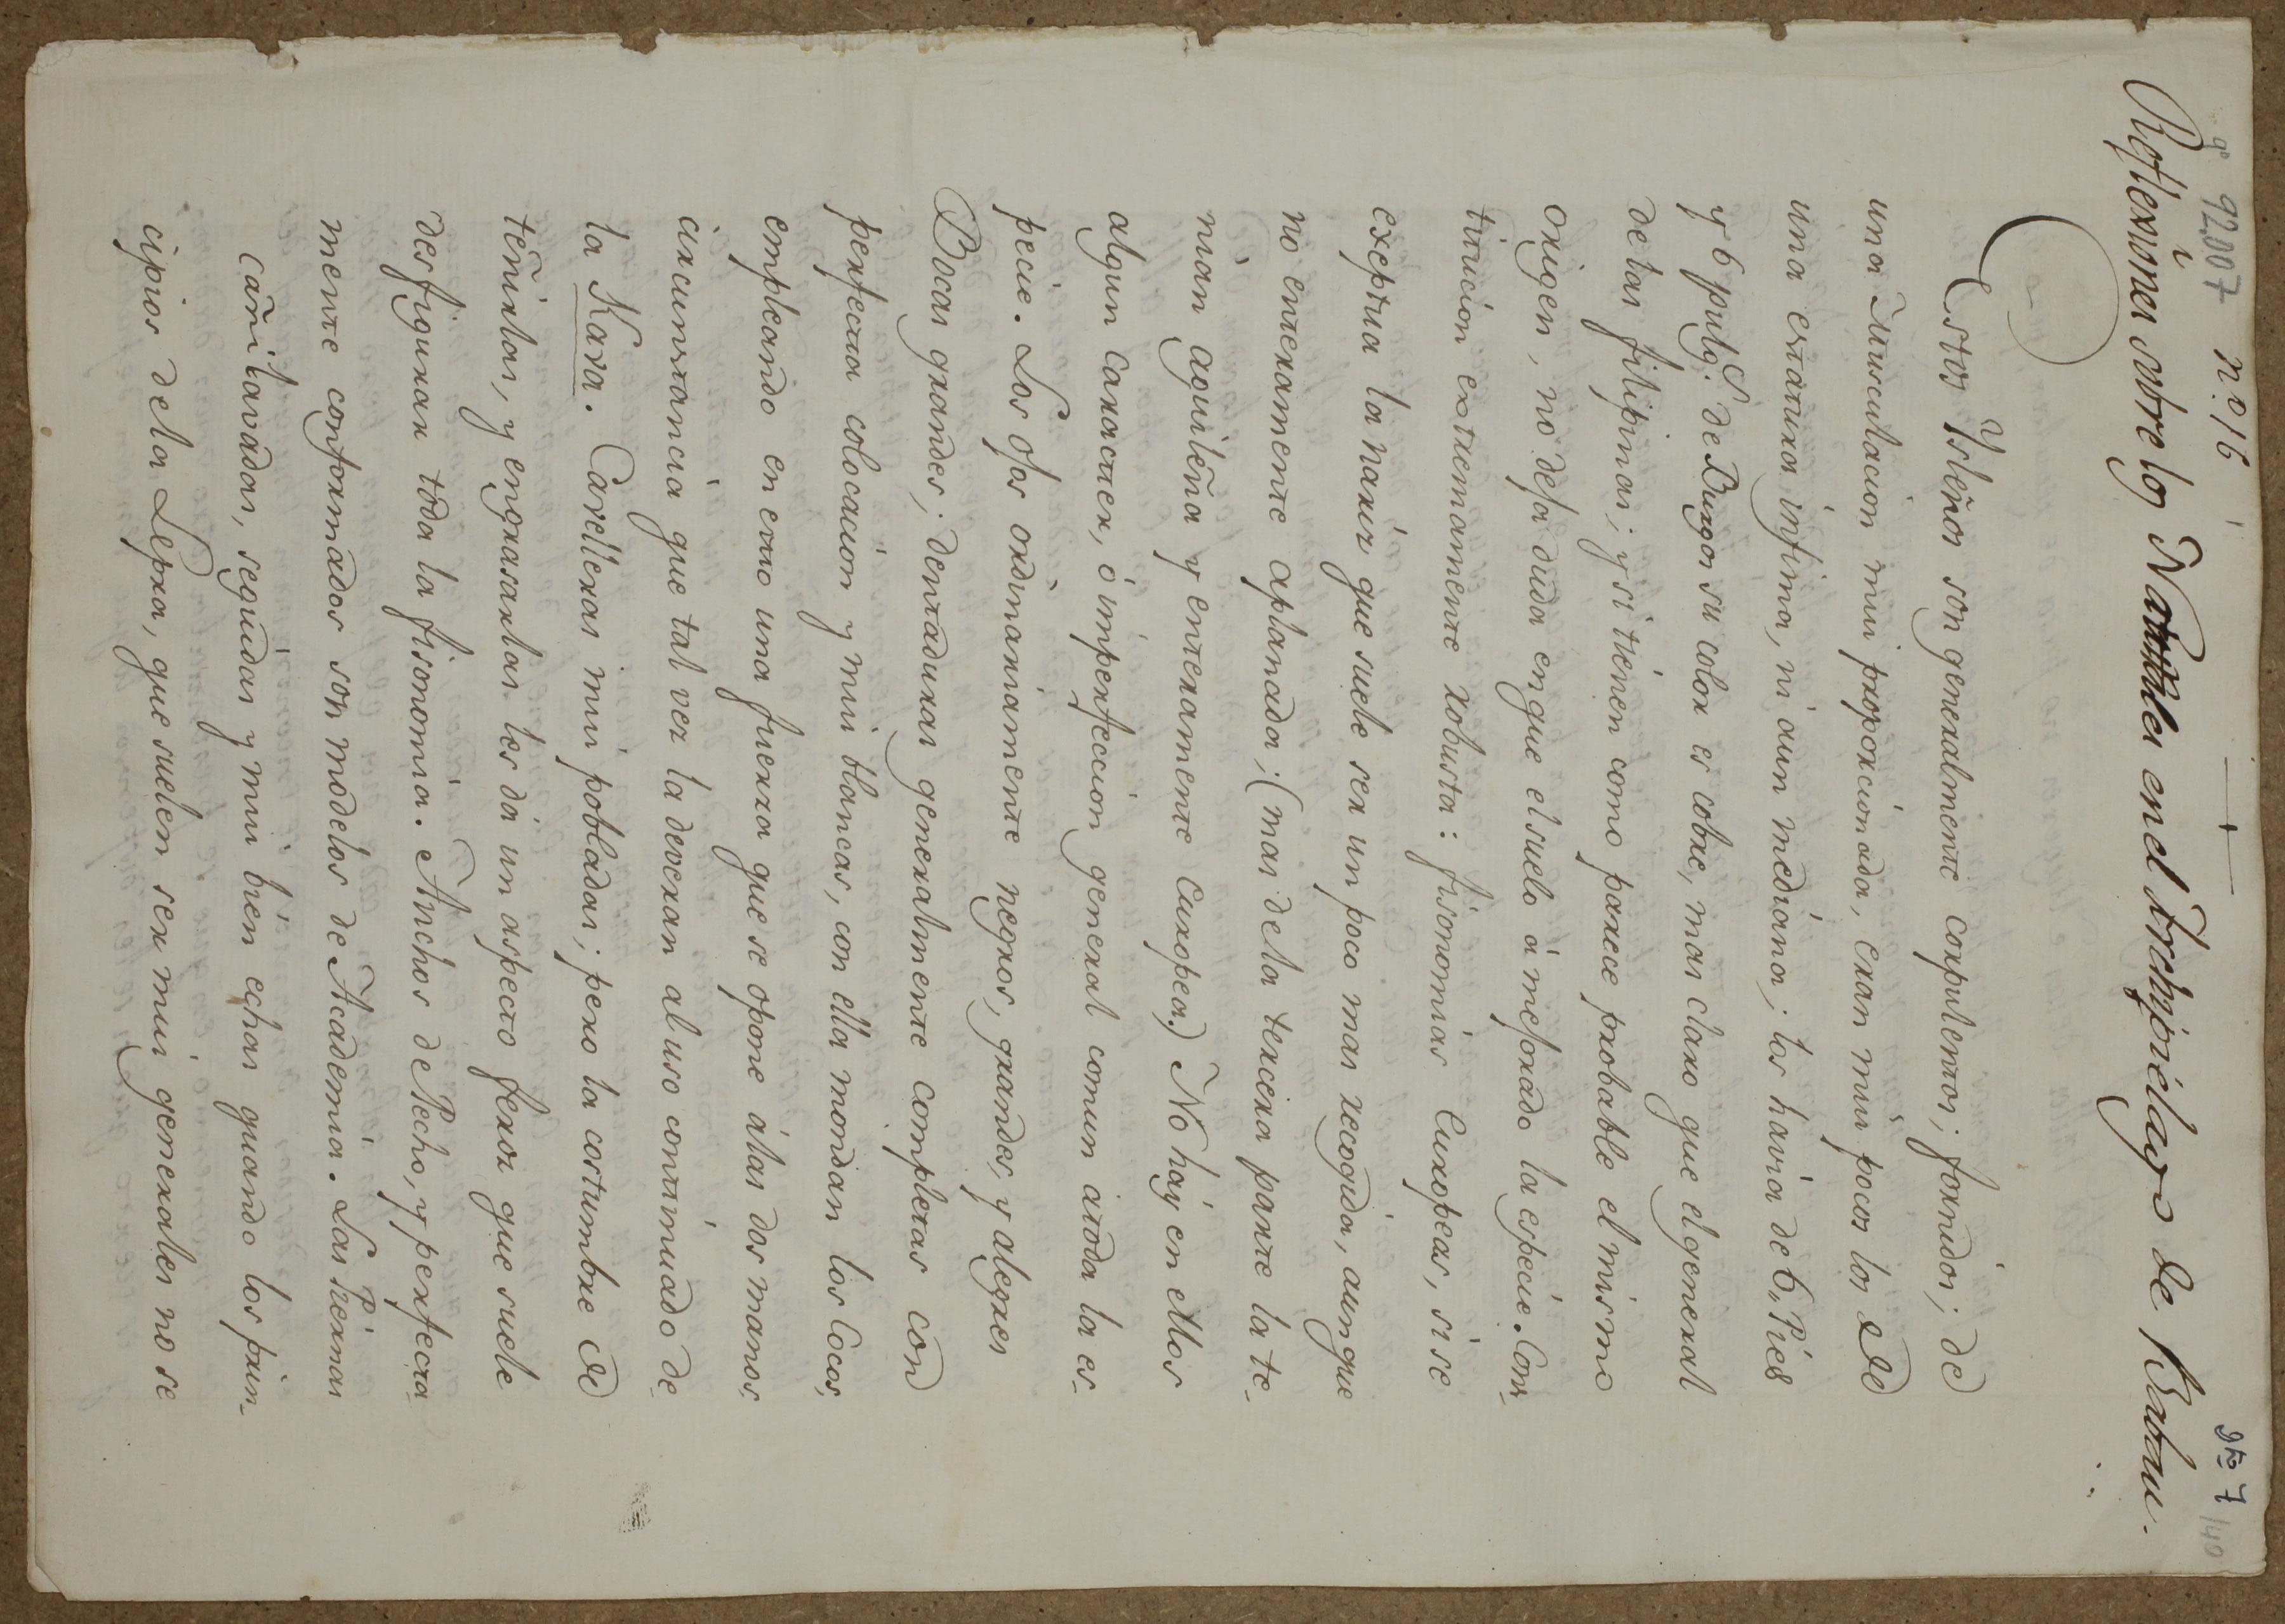 92.007 n.º 16
Dto 7
140
Reflexiones sobre los Naturales en el Archipielago de Babau.
Estos Ysleños son generalmente corpulentos; fornidos; de
una Musculacion mui proporcionada, eran mui pocos los de
una estatura infima, ni aun mediana; los havia de 6. Pies
y 6 pulg.s de Burgos su color es cobre, mas claro que el general
de las filipinas; y si tienen como parece probable el mismo
origen, no deja duda en que el suelo á mejorado la especie. Cons-
titucion extremamente robusta: fisonomias Europeas, si se
exeptua la nariz que suele ser un poco mas recogida, aunque
no enteramente aplanada; (mas de la tercera parte la te-
nian aguileña y enteramente Europea.) No hay en ellos
algun caracter, ó imperfeccion general comun atoda la es-
pecie. Los ojos ordinariamente negros, grandes, y alegres
Bocas grandes; dentaduras generalmente completas con
perfecta colocacion y mui blancas, con ella mondan los Cocos,
empleando en esto una fuerza que se opone álas dos manos.
circunstancia que tal vez la deveran al uso continuado de
la Kava. Cavelleras mui pobladas; pero la costumbre de
teñirlas, y engrasarlas les dá un aspecto feroz que suele
desfigurar toda la fisonomia. Anchos de Pecho, y perfecta-
mente conformados son modelos de Academia. Las Piernas
cañilavadas, seguidas y mui bien echas quando los prin-
cipios de la Lepra, que suelen ser mui generales no se